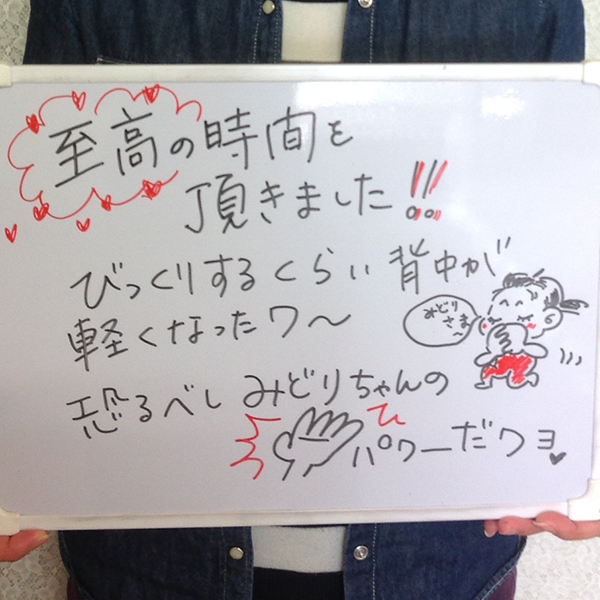 至高の時間を
頂きました!!!
びっくりするくらい背中が
軽くなったワ〜
みどり
さま〜
恐るべしみどりちゃんの
パワーだワヨ